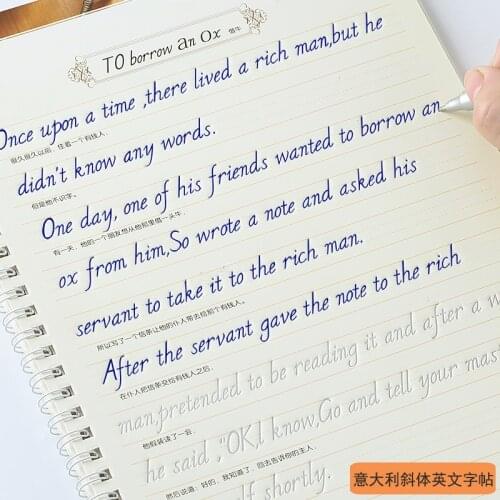 TO borrow an Ox 借牛
Once upon a time ,there lived a rich man,but he
很久很久以前，住着一个有钱人，
didn't know any words.
但是他不识字。
One day, one of his friends wanted to borrow an
有一天，他的一个朋友想从他那里借一头牛，
ox from him,So wrote a note and asked his
servant to take it to the rich man.
所以写了一个信条让他的仆人带去给那个有钱人。
After the servant gave the note to the rich
在仆人把信条交给有钱人之后，
man,pretended to be reading it and after a
他假装读了一会，
he said ,"OK,I know,Go and tell your
然后他说，好的，我知道了，回去告诉你的主人，
shortly.
意大利斜体英文字帖